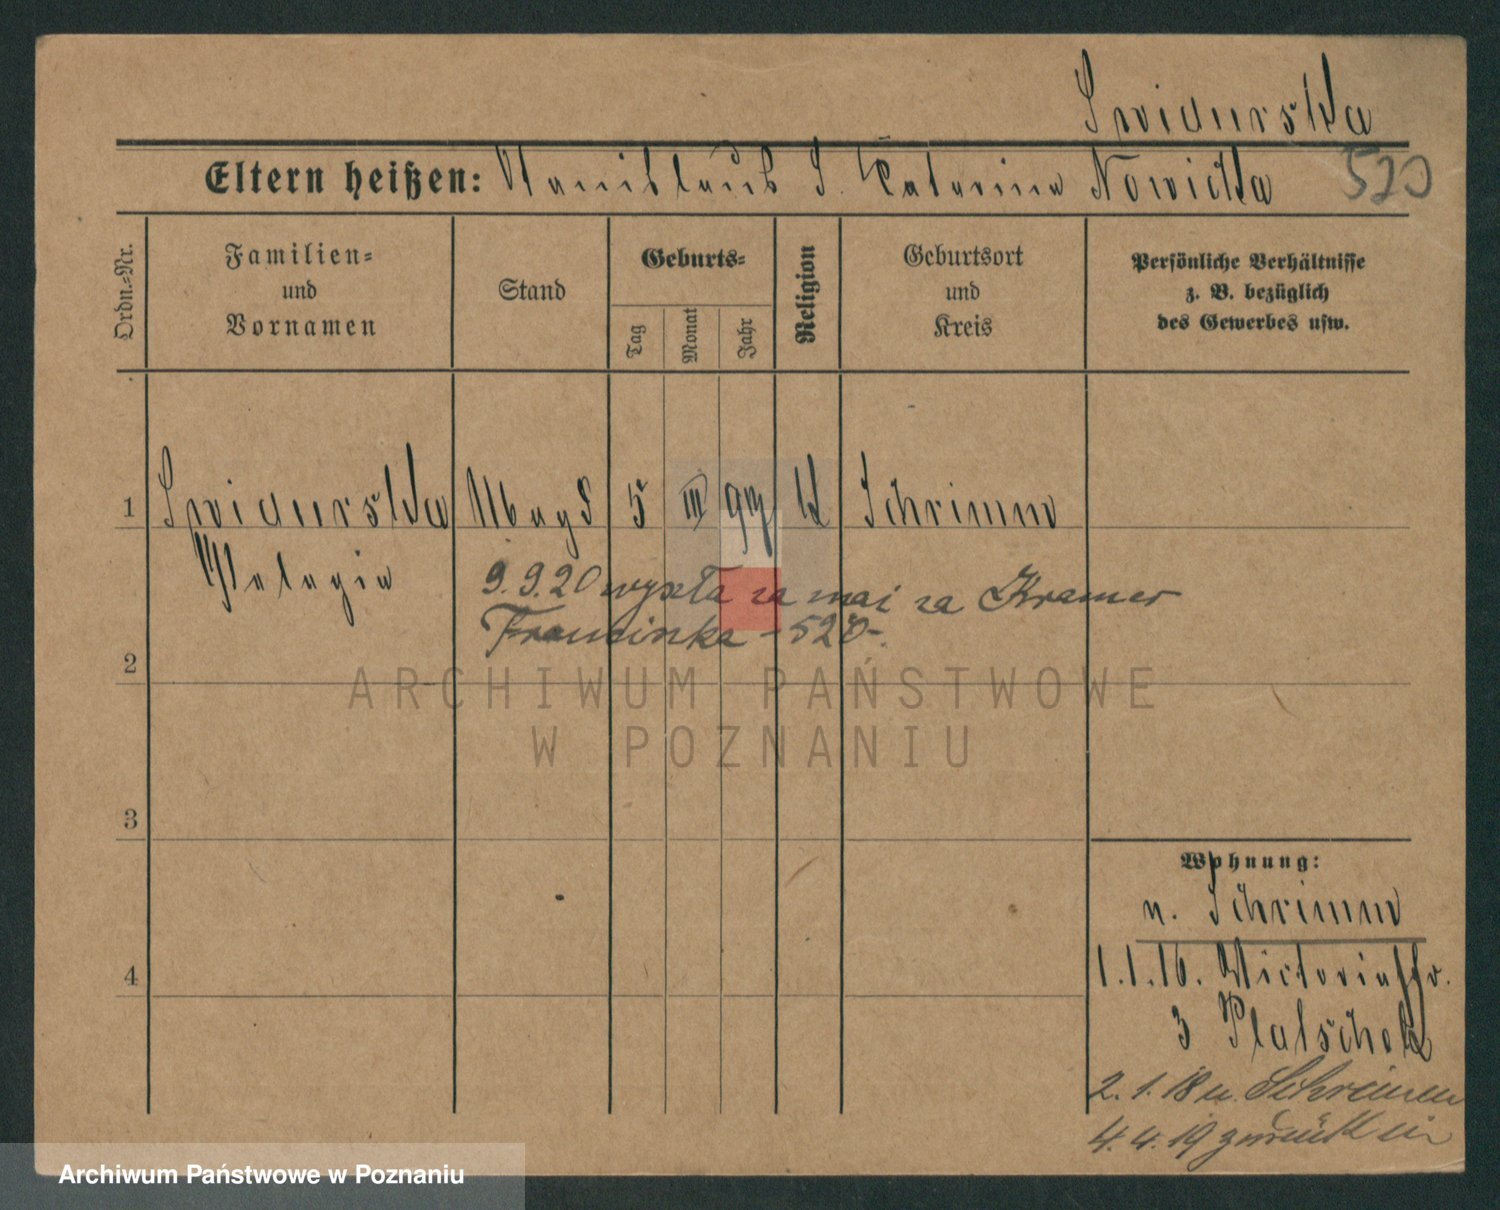 Swiderska
Eltern heißen: Stanislaus S. Katarina Nowicka 520
Ordn.-Nr.
Familien-
und
Vornamen
Stand
Geburts-
Tag
Monat
Jahr
Religion
Geburtsort
und
Kreis
Persönliche Verhältnisse
z. B. bezüglich
des Gewerbes usw.
1 Swiderska Magd 5 III 97 k Schrimm
Pelagia
9.9.20 wyszła za mąż za Kramer
Franciszka -520-
2
3
4
Wohnung:
n. Schrimm
1.1.16. Victoriastr.
3
2.1.18 n. Schrimm
4.4.19 zurück in
ARCHIWUM PAŃSTWOWE
W POZNANIU
Archiwum Państwowe w Poznaniu